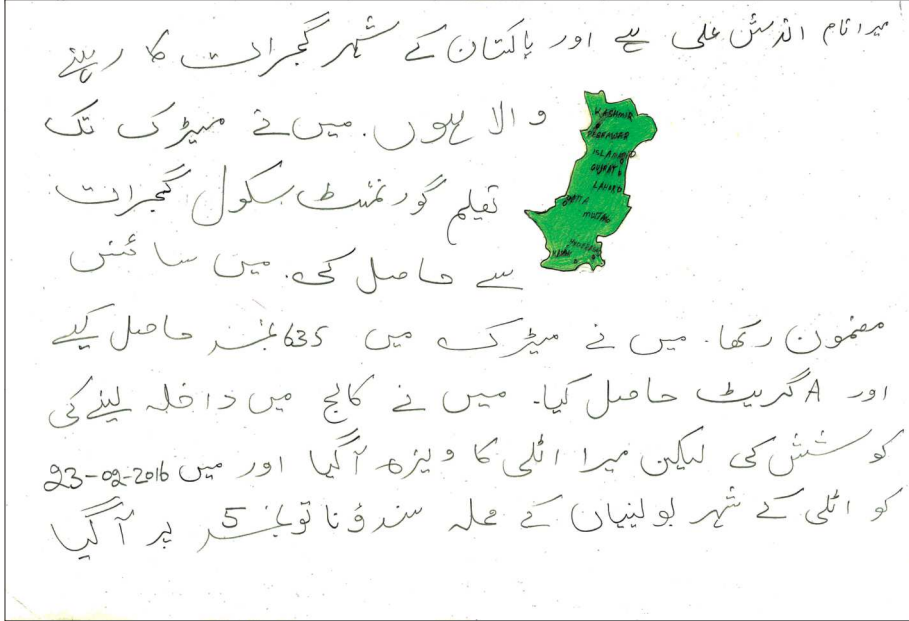 میرا نام انڈسٹن علی ہے اور پاکستان کے شہر گجرات کا رہنے
والا ہوں. میں نے میٹرک تک
تعلیم گورنمنٹ سکول گجرات
سے حاصل کی. میں سائنس
مضمون رکھا. میں نے میٹرک میں 635 نمبر حاصل کیے
اور A گریٹ حاصل کیا. میں نے کالج میں داخلہ لینے کی
کوشش کی لیکن میرا اٹلی کا ویزہ آگیا اور میں 23-02-2016
کو اٹلی کے شہر بولنیان کے محلہ سندؤناتو نمبر 5 پر آگیا
KASHMIR
PESHAWAR
ISLAMABAD
GUJRAT
LAHORE
MULTAN